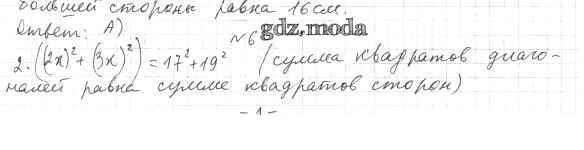 большей стороны равна 16см.
Ответ: А)
№6 gdz.moda
2·((2x)²+(3x)²) = 17²+19² (сумма квадратов диаго-
налей равна сумме квадратов сторон)
- 1 -